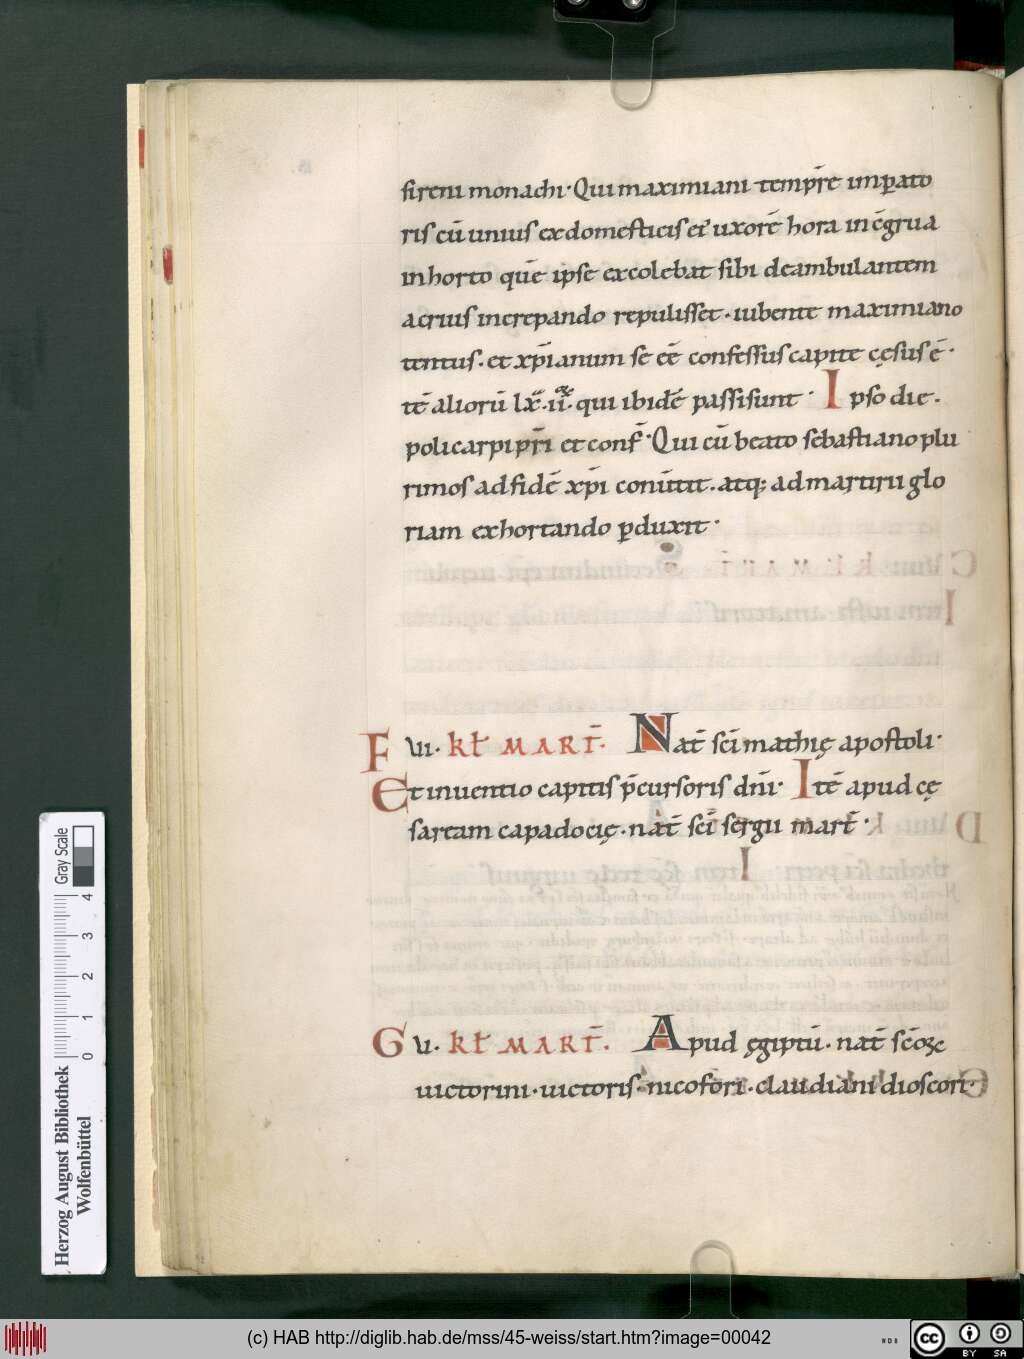 sireni monachi· Qui maximiani temp̄re imꝑato
ris cū unius ex domesticis ei' uxorē hora incēgrua
in horto quē ipse excolebat sibi deambulantem
acrius increpando repulisset· iubente maximiano
tentus· et xp̄ianum se eē confessus capite cęsus ē·
tē aliorū lx̄·ii· qui ibidē passi sunt· Ipso die·
policarpi pr̄i et conf̄· Qui cū beato sebastiano plu
rimos ad fidē xp̄i conūtit· atq; ad martirii glo
riam exhortando ꝑduxit·
F VI· kł MART̄· Nat̄ sc̄i mathię apostoli·
Et inuentio capitis p̄cursoris dn̄i· Itē apud cę
saream capadocię· nat̄ sc̄i sergii mart̄·
G V· kł MART̄· Apud ęgiptū· nat̄ sc̄oꝝ
uictorini· uictoris· nicofori· claudiani dioscori·
Herzog August Bibliothek
Wolfenbüttel
0 1 2 3 4
Gray Scale
(c) HAB http://diglib.hab.de/mss/45-weiss/start.htm?image=00042
cc BY SA